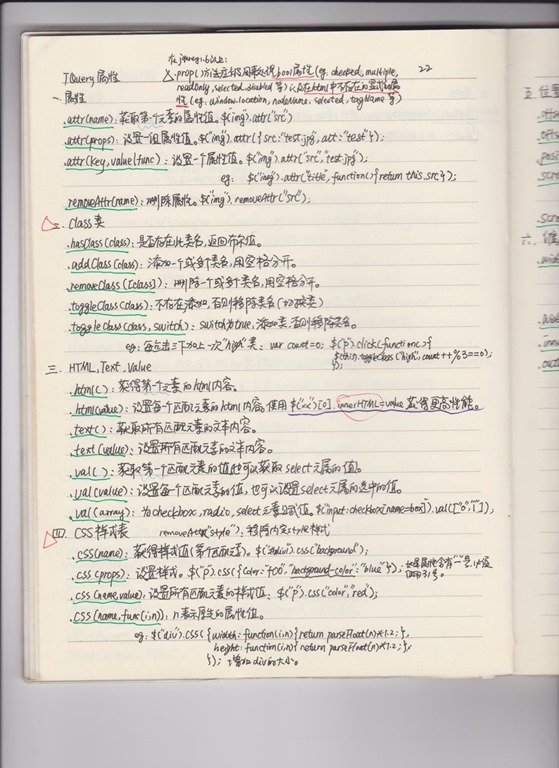 在jquery1.6以上:
JQuery 属性
△ .prop()方法应该被用来处理bool属性(eg. checked, multiple, 22
readOnly, selected, disabled 等)以及在html中不存在的显式的属
性(eg. window.location, nodeName, selected, tagName 等)
一. 属性
.attr(name): 获取第一个元素的属性值。$("img").attr("src")
.attr(props): 设置一组属性值。$("img").attr({src:"test.jpg", alt:"test"});
.attr(key,value|func): 设置一个属性值。$("img").attr("src","test.jpg");
eg: $("img").attr("title", function(){return this.src});
removeAttr(name): 删除属性。$("img").removeAttr("src");
二. Class类
.hasClass(class): 是否存在此类名,返回布尔值。
.addClass(class): 添加一个或多个类名,用空格分开。
.removeClass([class]): 删除一个或多个类名,用空格分开。
.toggleClass(class): 不存在添加,否则移除类名(切换类)
.toggleClass(class, switch): switch为true,添加类,否则移除类名。
eg: 每点击三下加上一次"high"类: var count=0; $("p").click(function(){
$(this).toggleClass("high", count++%3==0);
});
三. HTML, Text, Value
.html(): 获得第一个元素的html内容。
.html(value): 设置每个匹配元素的html内容。使用$("xx")[0].innerHTML=value 获得更高性能。
.text(): 获取所有匹配元素的文本内容。
.text(value): 设置所有匹配元素的文本内容。
.val(): 获取第一个匹配元素的值,也可以获取select元属的值。
.val(value): 设置每个匹配元素的值,也可以设置select元属的选中的值。
.val(array): 为checkbox, radio, select元素设定值。$("input:checkbox[name=box]").val(["0","1"]);
四. CSS样式表 removeAttr("style"): 移除内定style样式
.css(name): 获得样式值(第一个匹配元素)。$("#div").css("background");
.css(props): 设置样式。$("p").css({color:"#00", "background-color":"blue"}); 如果属性含有"-"号,必须
用引号。
.css(name,value): 设置所有匹配元素的样式值: $("p").css("color","red");
.css(name,func(i,n)): n表示原先的属性值。
eg: $("div").css({width: function(i,n){return parseFloat(n)*1.2;},
height: function(i,n){return parseFloat(n)*1.2;},
}); 增加div的大小。
五. 位置
.offs
.offs
.posi
.scro
.scro
六.
.wid
.inne
.oute